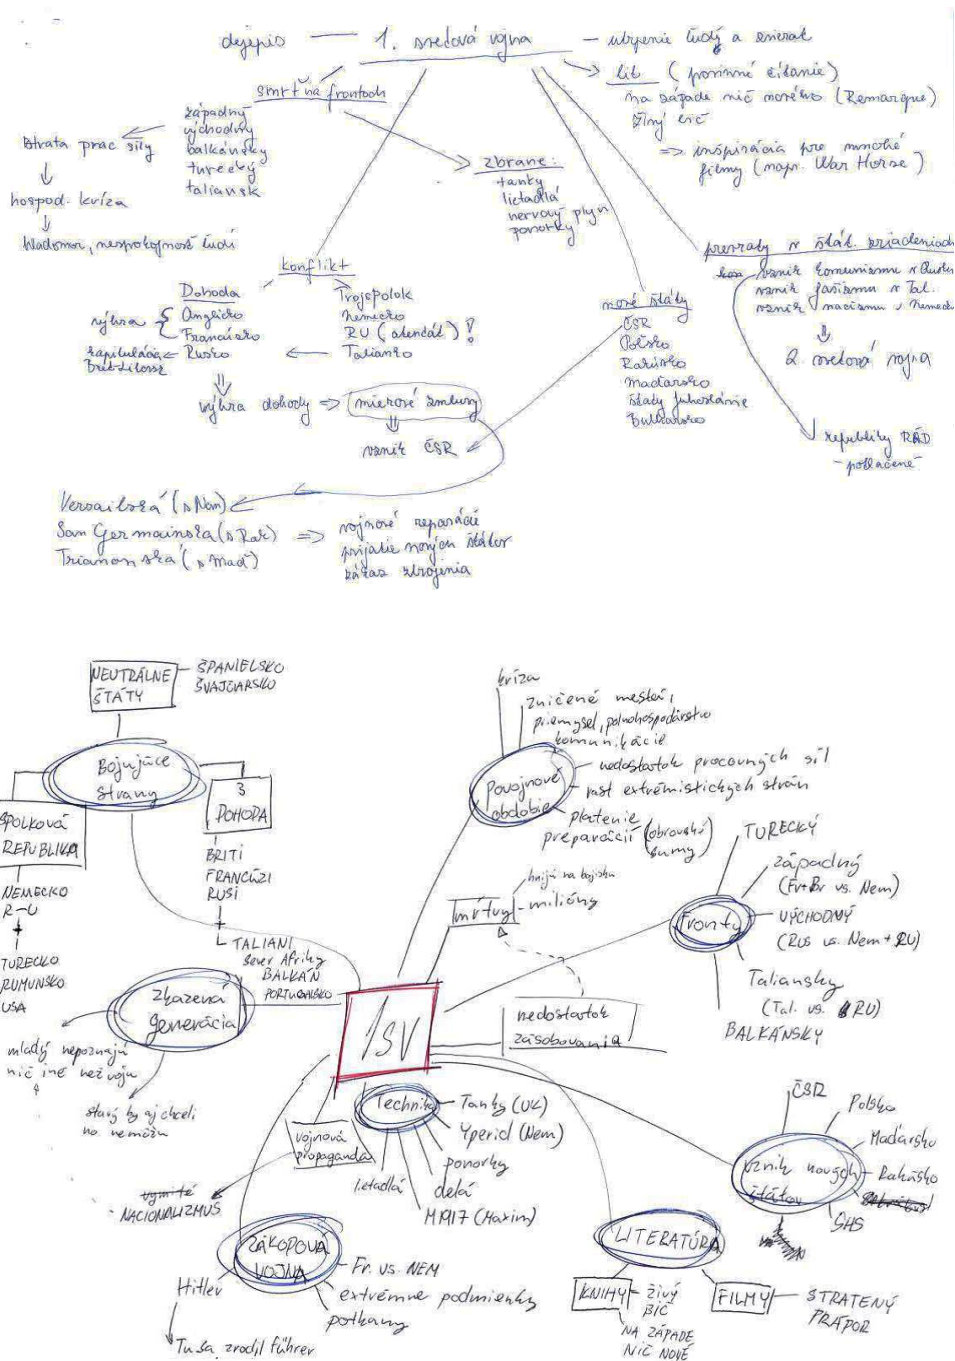 dejepis — 1. svetová vojna
— utrpenie ľudí a zvierat
lit (povinné čítanie)
na západe nič nového (Remarque)
Živý bič
=> inšpirácia pre mnohé
filmy (napr. War Horse)
smrť na frontoch
západný
východný
balkánsky
turecký
taliansk
strata prac sily
hospod. kríza
hladomor, nespokojnosť ľudí
zbrane:
tanky
lietadlá
nervový plyn
ponorky
prevraty v štát. zriadeniach
vznik komunizmu v Rusku
vznik fašizmu v Tal.
vznik nacizmu v Nemecku
2. svetová vojna
republiky RÁD
- potlačené
konflikt
Dohoda
Anglicko
Francúzsko
Rusko
výhra
kapitulácia
Brest-Litovsk
Trojspolok
Nemecko
RU (atentát) !
Taliansko
nové štáty
ČSR
Poľsko
Rakúsko
Maďarsko
štáty Juhoslávie
Bulharsko
výhra dohody => mierové zmluvy
vznik ČSR
Versailská (s Nem)
San Germainska (s Rak) =>
Trianonská (s Maď)
vojnové reparácie
prijatie nových štátov
zákaz zbrojenia
NEUTRÁLNE
ŠTÁTY
ŠPANIELSKO
ŠVAJČIARSKO
Bojujúce
strany
SPOLKOVÁ
REPUBLIKA
NEMECKO
R-U
+
TURECKO
RUMUNSKO
USA
3
POHODA
BRITI
FRANCÚZI
RUSI
+
TALIANI
sever Afriky
BALKÁN
PORTUGALSKO
kríza
zničené mestá,
priemysel, poľnohospodárstvo
komunikácie
povojnové
obdobie
nedostatok pracovných síl
rast extrémistických strán
platenie
preparácií (obrovské
sumy)
hnijú na bojisku
mŕtvy - milióny
Fronty
TURECKÝ
západný
(Fr+Br vs. Nem)
VÝCHODNÝ
(RUS vs. Nem + RU)
Taliansky
(Tal. vs. RU)
BALKÁNSKY
Zkazená
generácia
mladý nepoznajú
nič iné než vojnu
starý by aj chceli
no nemôžu
1 SV
nedostatok
zásobovania
Technika
Tanky (UK)
Yperid (Nem)
ponorky
delá
M1917 (Maxim)
lietadlá
vojnová
propaganda
NACIONALIZMUS
ZÁKOPOVÁ
VOJNA
Fr. vs. NEM
extrémne podmienky
potkany
Hitler
Tu sa zrodil führer
vznik nových
štátov
ČSR
Poľsko
Maďarsko
Rakúsko
SHS
LITERATÚRA
KNIHY - ŽIVÝ
BIČ
NA ZÁPADE
NIČ NOVÉ
FILMY - STRATENÝ
PRÁPOR